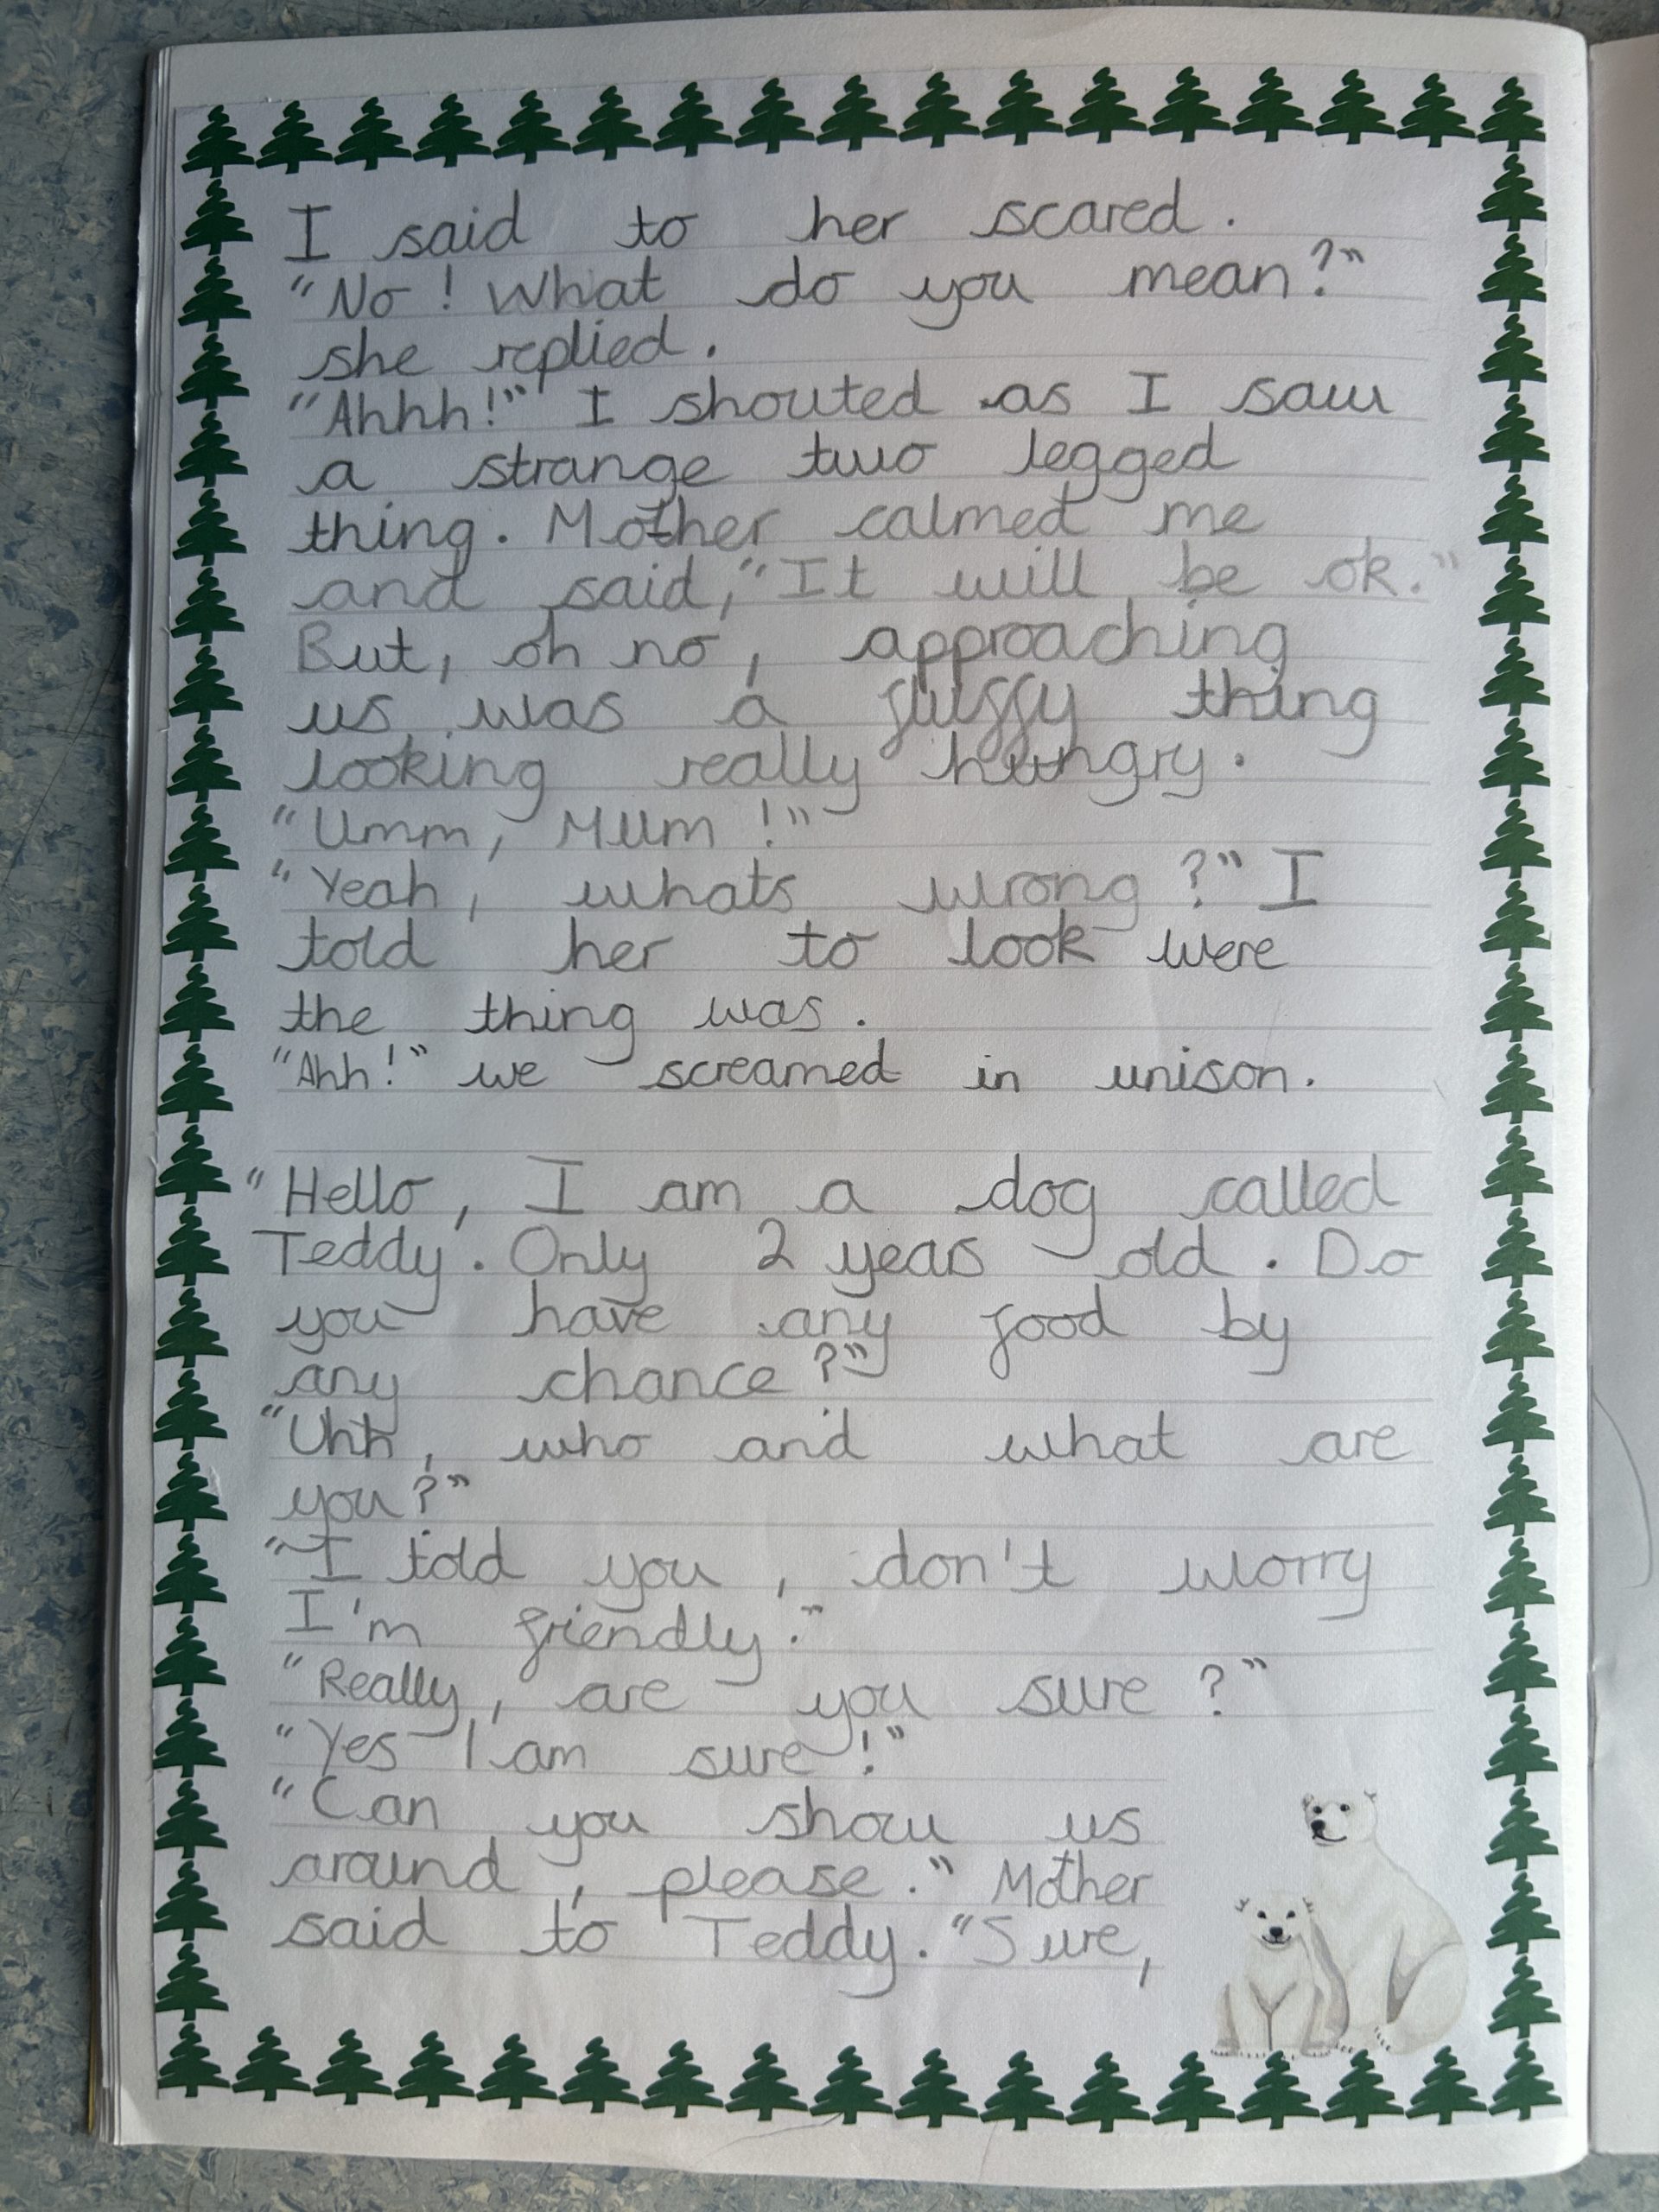 I said to her scared.
"No! What do you mean?"
she replied.
"Ahhh!" I shouted as I saw
a strange two legged
thing. Mother calmed me
and said, "It will be ok."
But, oh no, approaching
us was a fluffy thing
looking really hungry.
"Umm, Mum!"
"Yeah, whats wrong?" I
told her to look were
the thing was.
"Ahh!" we screamed in unison.
"Hello, I am a dog called
Teddy. Only 2 years old. Do
you have any food by
any chance?"
"Uhh, who and what are
you?"
"I told you, don't worry
I'm friendly."
"Really, are you sure?"
"Yes I am sure!"
"Can you show us
around, please." Mother
said to Teddy. "Sure,